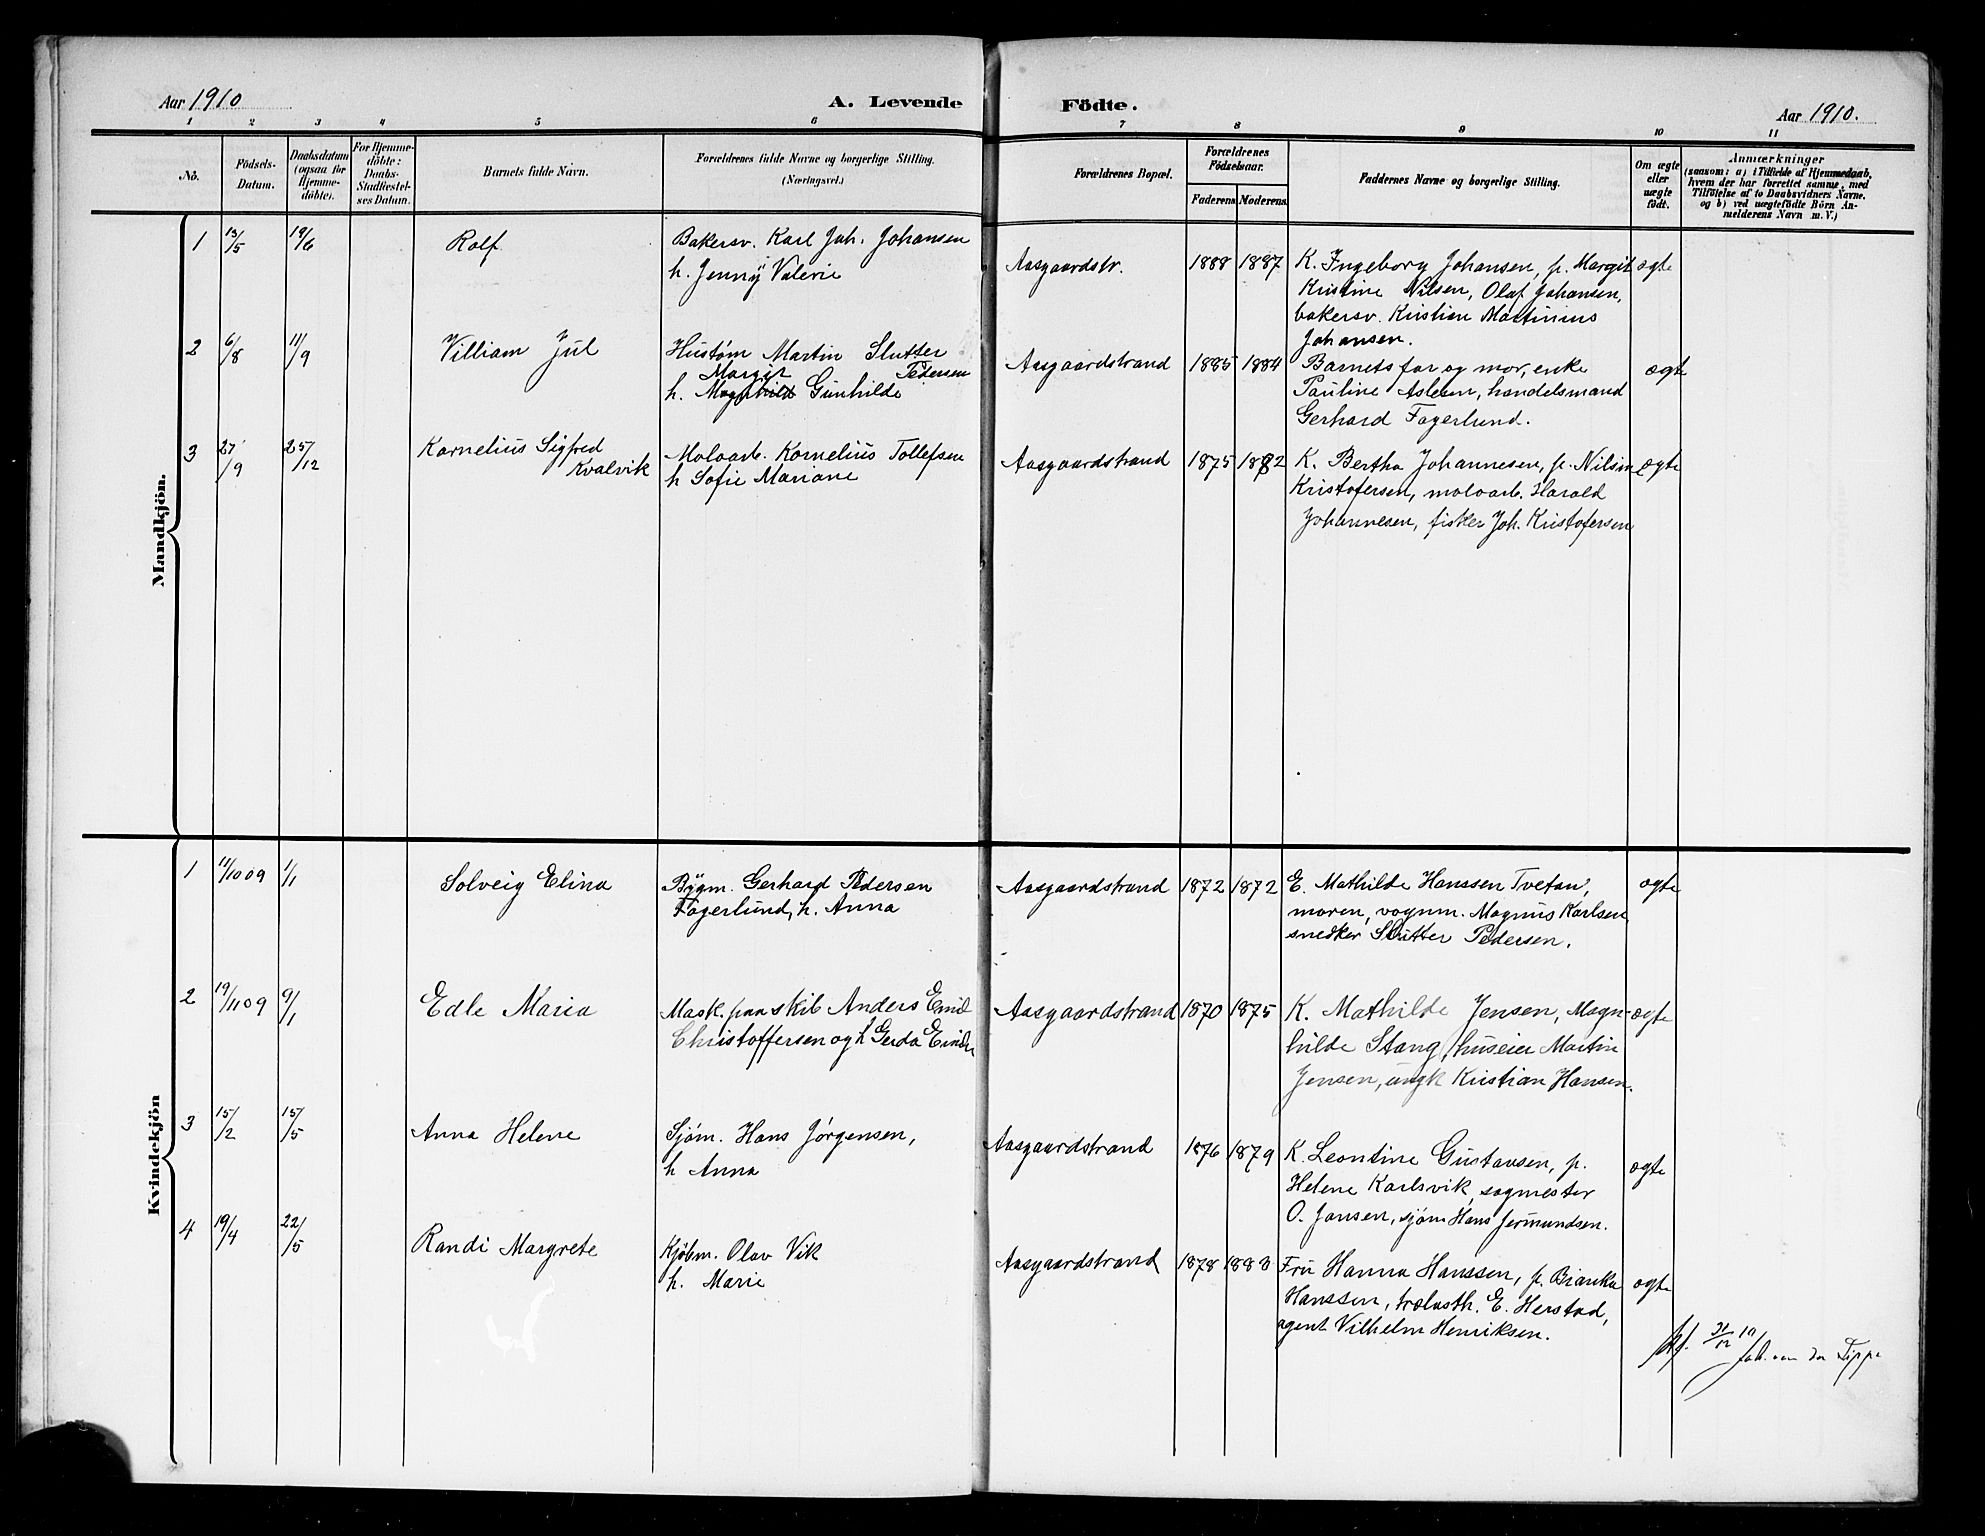 Aar 1910
A. Levende Födte.
Aar 1910.
1 2 3 4 5 6 7 8 9 10 11
No.
Födsels-
Datum.
Daabsdatum
(ogsaa for
Hjemme-
döbte).
For Hjemme-
döbte:
Daabs-
Stadfæstel-
ses Datum.
Barnets fulde Navn.
Forældrenes fulde Navne og borgerlige Stilling.
(Næringsvei.)
Forældrenes Bopæl.
Forældrenes
Födselsaar.
Faderens Moderens
Faddernes Navne og borgerlige Stilling.
Om ægte
eller
uægte
födt.
Anmærkninger
(saasom: a) i Tilfælde af Hjemmedaab,
hvem der har forrettet samme, med
Tilföielse af to Daabsvidners Navne,
og b) ved uægtefödte Börn An-
melderens Navn m. V.)
Mandkjön.
1 13/5 19/6 Rolf Bakersv. Karl Joh. Johansen
h. Jenny Valerie
Aasgaardstr. 1888 1887 K. Ingeborg Johansen, p. Margit ægte
Kristine Nilsen, Olaf Johansen,
bakersv. Kristian Martinius
Johansen.
2 6/8 11/9 Villiam Jul Hustøm Martin Slutter
Margit Pedersen
h. Magnhild Gunhilde
Aasgaardstrand 1885 1884 Barnets far og mor, enke ægte
Pauline Aslesen, handelsmand
Gerhard Fagerlund.
3 27/9 25/12 Kornelius Sigfred
Kvalvik
Moloarb. Kornelius Tollefsen
h Sofie Mariane
Aasgaardstrand 1875 1882 K. Bertha Johannesen, p. Nilsine ægte
Kristofersen, moloarb. Harald
Johannesen, fisker Joh. Kristofersen
Kvindekjön
1 11/10 09 1/1 Solveig Elina Bygm. Gerhard Pedersen
Fagerlund, h. Anna
Aasgaardstrand 1872 1872 E. Mathilde Hanssen Tvetan, ægte
moren, vognm. Magnus Karlsen
snedker Slutter Pedersen.
2 19/11 09 9/1 Edle Maria Mask. paa skib Anders Emil
Christoffersen og h Gerda
Aasgaardstrand 1870 1875 K. Mathilde Jensen, Magn- ægte
hilde Stang, huseier Martin
Jensen, ungk Kristian Hansen.
3 15/2 15/5 Anna Helene Sjøm. Hans Jørgensen,
h Anna
Aasgaardstrand 1876 1879 K. Leontine Gustavsen, p. ægte
Helene Karlsvik, sagmester
O. Jansen, sjøm Hans Jermundsen.
4 19/4 22/5 Randi Margrete Kjøbm. Olav Vik
h. Marie
Aasgaardstrand 1878 1883 Fru Hanna Hanssen, p. Bianka ægte
Hanssen, trælasth. E. Herstad,
agent Vilhelm Henriksen.
31/12 10
Joh. van der Lippe